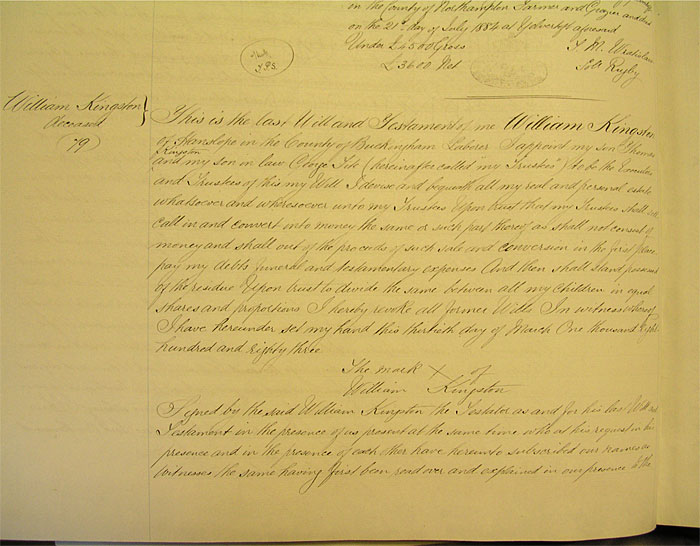 in the County of Northampton Farmer and Grazier and
on the 21st day of July 1884 at Yelvertoft aforesaid
Under £4500 Gross
£3600 Net
T. M. Wratislaw
Solr Rugby
William Kingston
deceased
(79)
This is the last Will and Testament of me William Kingston
of Hanslope in the County of Buckingham Laborer I appoint my son Thomas
Kingston
and my son in law George (hereinafter called "my Trustees") to be the Executors
and Trustees of this my Will I devise and bequeath all my real and personal estate
whatsoever and wheresoever unto my Trustees Upon trust that my Trustees shall sell
call in and convert into money the same or such part thereof as shall not consist of
money and shall out of the proceeds of such sale and conversion in the first place
pay my debts funeral and testamentary expenses And then shall stand possessed
of the residue Upon trust to divide the same between all my children in equal
shares and proportions I hereby revoke all former Wills In witness whereof
I have hereunder set my hand this thirtieth day of March One thousand eight
hundred and eighty three
The mark X of
William Kingston
Signed by the said William Kingston the Testator as and for his last Will and
Testament in the presence of us present at the same time who at his request in his
presence and in the presence of each other have hereunto subscribed our names as
Witnesses the same having first been read over and explained in our presence to the